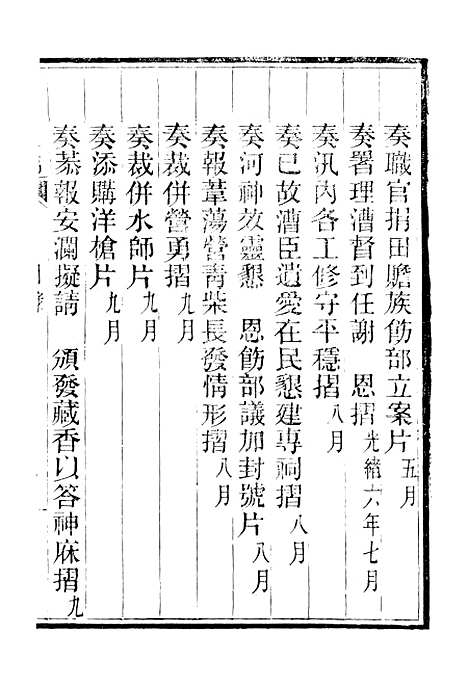 奏職官捐田贍族飭部立案片五月
奏署理漕督到任謝　恩摺光緒六年七月
奏汛內各工修守平穩摺八月
奏已故漕臣遺愛在民懇建專祠摺八月
奏河神效靈懇　恩飭部議加封號片八月
奏報葦蕩營青柴長發情形摺八月
奏裁併營勇摺九月
奏裁併水師片九月
奏添購洋槍片九月
奏恭報安瀾擬請　頒發藏香以答神庥摺九